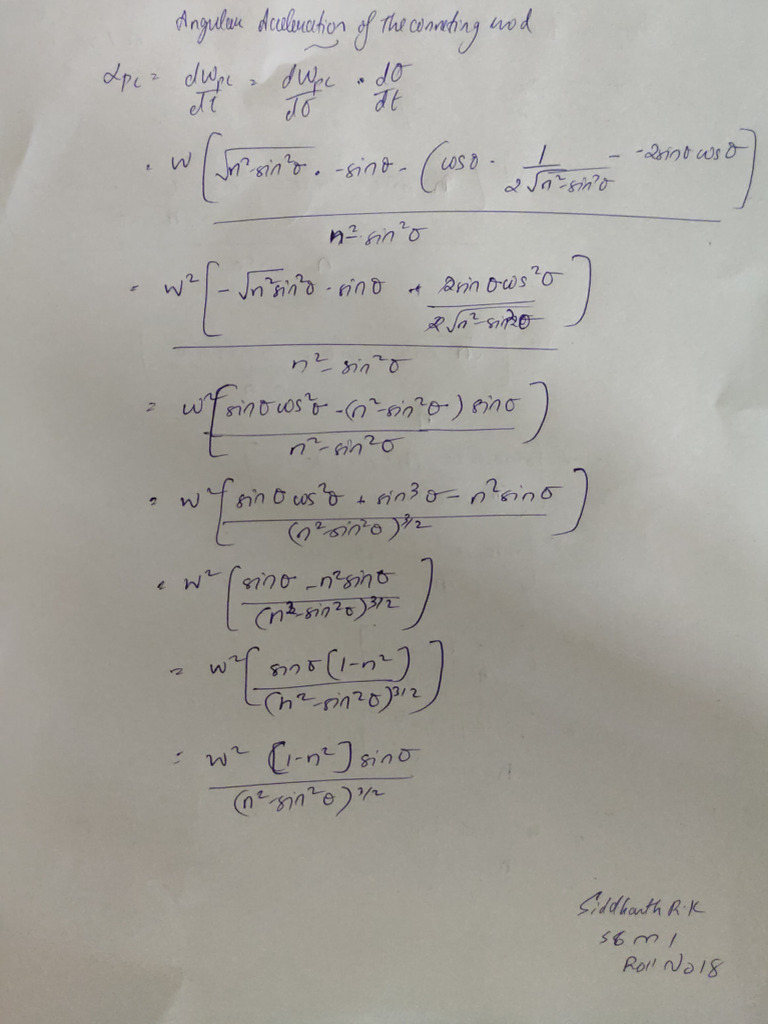 Angular Acceleration of The connecting rod
αPC = dωPC/dt = dωPC/dθ · dθ/dt
= ω [√(n²-sin²θ) · -sinθ - (cosθ · 1/(2√(n²-sin²θ)) - -2sinθ cosθ] / (n²-sin²θ)
= ω² [-√(n²sin²θ) · sinθ + 2sinθcos²θ/(2√(n²-sin²θ))] / (n²-sin²θ)
= ω² [sinθcos²θ - (n²-sin²θ) sinθ / (n²-sin²θ)]
= ω² [sinθcos²θ + sin³θ - n²sinθ / (n²-sin²θ)^3/2]
= ω² [sinθ - n²sinθ / (n²-sin²θ)^3/2]
= ω² [sinθ(1-n²) / (n²-sin²θ)^3/2]
= ω² [1-n²] sinθ / (n²-sin²θ)^3/2
Siddharth R.K
S6 M1
Roll No 18